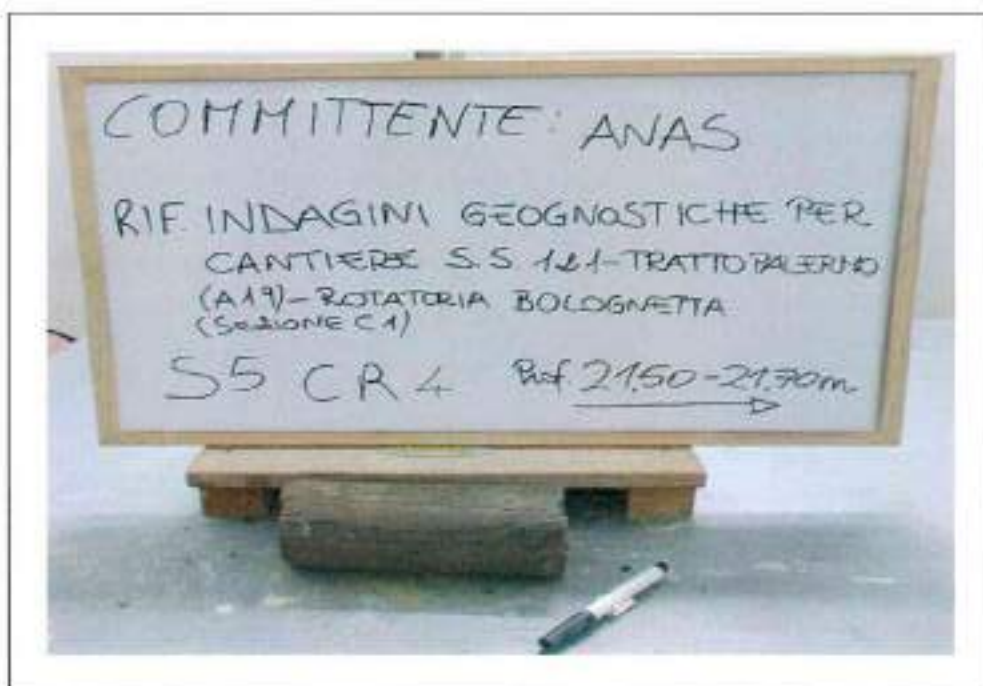 COMMITTENTE: ANAS
RIF. INDAGINI GEOGNOSTICHE PER
CANTIERE S.S 121-TRATTO PALERMO
(A19)-ROTATORIA BOLOGNETTA
(SEZIONE C1)
S5 CR4 Prof. 21,50-21,70m